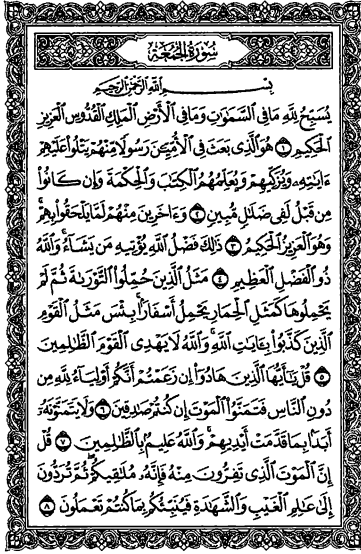 سُورَةُ الجُمُعَةِ
بِسْمِ اللَّهِ الرَّحْمَٰنِ الرَّحِيمِ
يُسَبِّحُ لِلَّهِ مَا فِي السَّمَٰوَٰتِ وَمَا فِي الْأَرْضِ الْمَلِكِ الْقُدُّوسِ الْعَزِيزِ
الْحَكِيمِ ١ هُوَ الَّذِي بَعَثَ فِي الْأُمِّيِّـۧنَ رَسُولًا مِّنْهُمْ يَتْلُوا۟ عَلَيْهِمْ
ءَايَٰتِهِۦ وَيُزَكِّيهِمْ وَيُعَلِّمُهُمُ الْكِتَٰبَ وَالْحِكْمَةَ وَإِن كَانُوا۟
مِن قَبْلُ لَفِي ضَلَٰلٍ مُّبِينٍ ٢ وَءَاخَرِينَ مِنْهُمْ لَمَّا يَلْحَقُوا۟ بِهِمْ
وَهُوَ الْعَزِيزُ الْحَكِيمُ ٣ ذَٰلِكَ فَضْلُ اللَّهِ يُؤْتِيهِ مَن يَشَآءُ وَاللَّهُ
ذُو الْفَضْلِ الْعَظِيمِ ٤ مَثَلُ الَّذِينَ حُمِّلُوا۟ التَّوْرَىٰةَ ثُمَّ لَمْ
يَحْمِلُوهَا كَمَثَلِ الْحِمَارِ يَحْمِلُ أَسْفَارًا بِئْسَ مَثَلُ الْقَوْمِ
الَّذِينَ كَذَّبُوا۟ بِـَٔايَٰتِ اللَّهِ وَاللَّهُ لَا يَهْدِي الْقَوْمَ الظَّٰلِمِينَ
٥ قُلْ يَٰٓأَيُّهَا الَّذِينَ هَادُوٓا۟ إِن زَعَمْتُمْ أَنَّكُمْ أَوْلِيَآءُ لِلَّهِ مِن
دُونِ النَّاسِ فَتَمَنَّوُا۟ الْمَوْتَ إِن كُنتُمْ صَٰدِقِينَ ٦ وَلَا يَتَمَنَّوْنَهُۥٓ
أَبَدًۢا بِمَا قَدَّمَتْ أَيْدِيهِمْ وَاللَّهُ عَلِيمٌۢ بِالظَّٰلِمِينَ ٧ قُلْ
إِنَّ الْمَوْتَ الَّذِي تَفِرُّونَ مِنْهُ فَإِنَّهُۥ مُلَٰقِيكُمْ ثُمَّ تُرَدُّونَ
إِلَىٰ عَٰلِمِ الْغَيْبِ وَالشَّهَٰدَةِ فَيُنَبِّئُكُم بِمَا كُنتُمْ تَعْمَلُونَ ٨